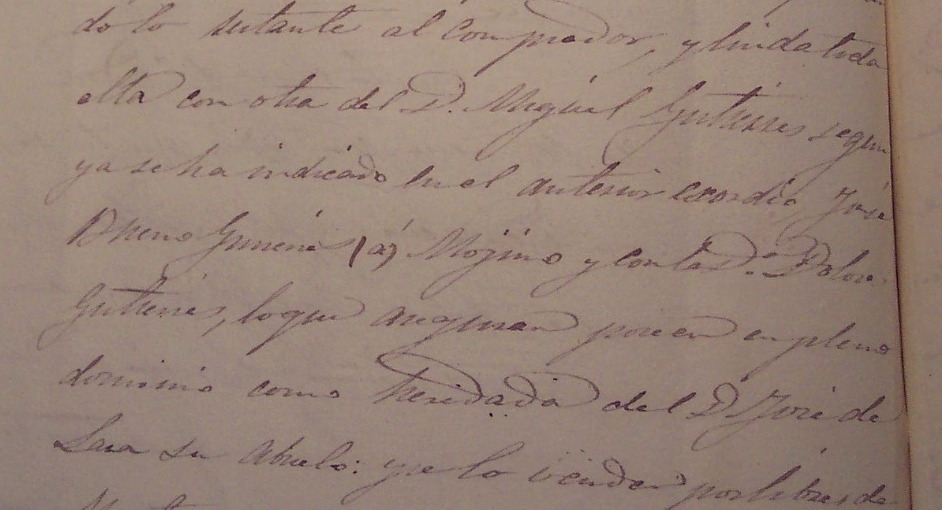 do lo restante al Comprador, y linda toda
esta con otra del D. Miguel Gutierres segun
ya se ha indicado en el anterior exordio, José
Bueno Gimenes (á) Mojino y con la D.ª Dolores
Gutierres, lo que aseguran poseen en pleno
dominio como heredada del D José de
Lara su Abuelo: y se lo venden por libre de